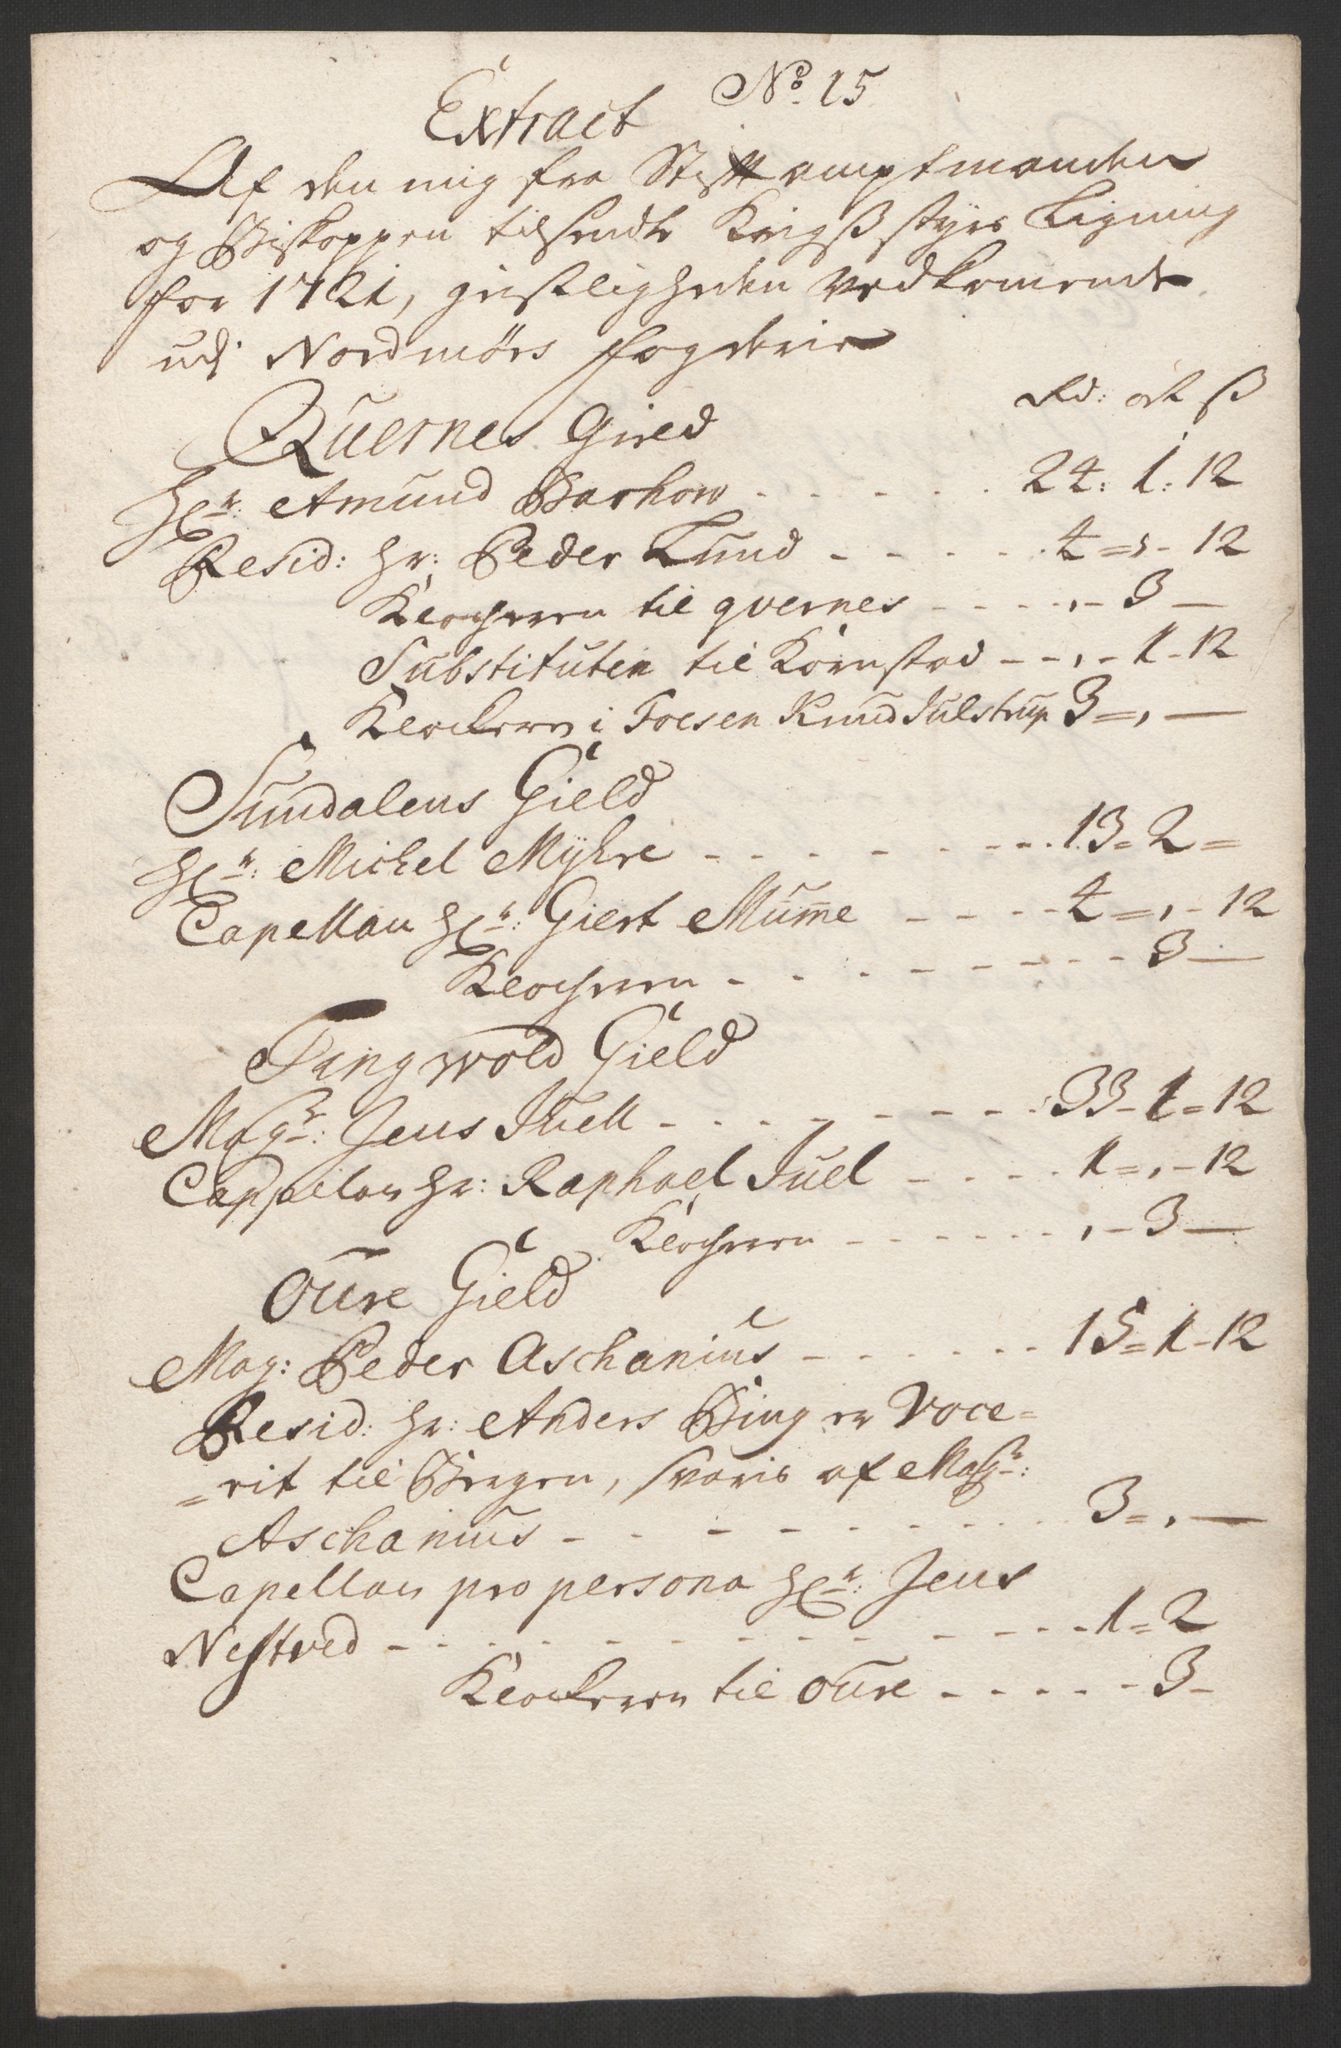 No. 15
Extract
Af den mig fra Stiftamptmanden
og Biskoppen tilsendte Krigsstyrs Ligning
for 1721, geistligheden vedkomende
udj Nordmørs fogderie
Rd: ort ß
Quernes Gield
Hr: Amund Barhow - - - - - 24: 1: 12
Resid: Hr: Peder Lund - - - - 4 = , - 12
Klocheren til qvernes - - - - , - 3 —
Substituten til Kornstad - - , - 1 - 12
Klockeren i Foesen Knud Julstrup 3 = , —
Sundalens Gield
Hr: Michel Myhre - - - - - - - 13 = 2 =
Capellan Hr: Giert Mume - - - - 4 = , - 12
Klocheren - - - - - - - - 3 —
Tingwold Gield
Magr: Jens Juell - - - - - - - 33 - 1 = 12
Cappellan Hr: Raphael Juel - - - - 1 = , - 12
Klocheren - - - - - - , - 3 —
Oure Gield
Mag: Peder Aschanius - - - - - - 15 = 1 - 12
Resid: Hr: Anders Bing er Voce=
=rit til Bergen, svaris af Magr:
Aschanius - - - - - - - - 3 = , —
Capellan pro persona Hr: Jens
Nestved - - - - - - - - - - 1 = 2
Klockeren til Oure - - - - - 3 -